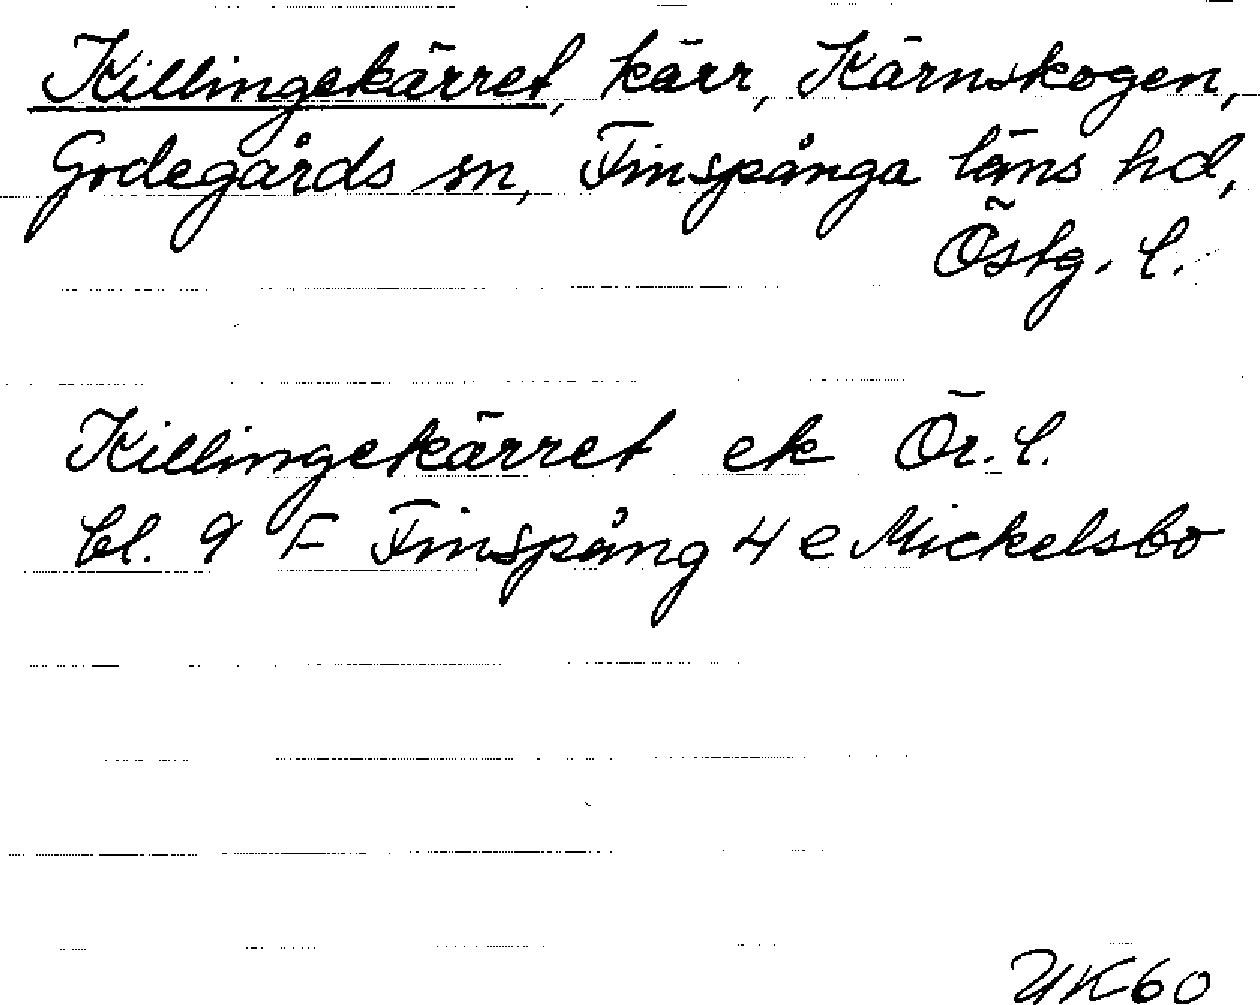 Killingekärret, kärr, Kärnskogen,
Godegårds sn, Finspånga läns hd,
Östg. l.
Killingekärret ek Ör. l.
bl. 9 F Finspång 4 e Mickelsbo
UK60